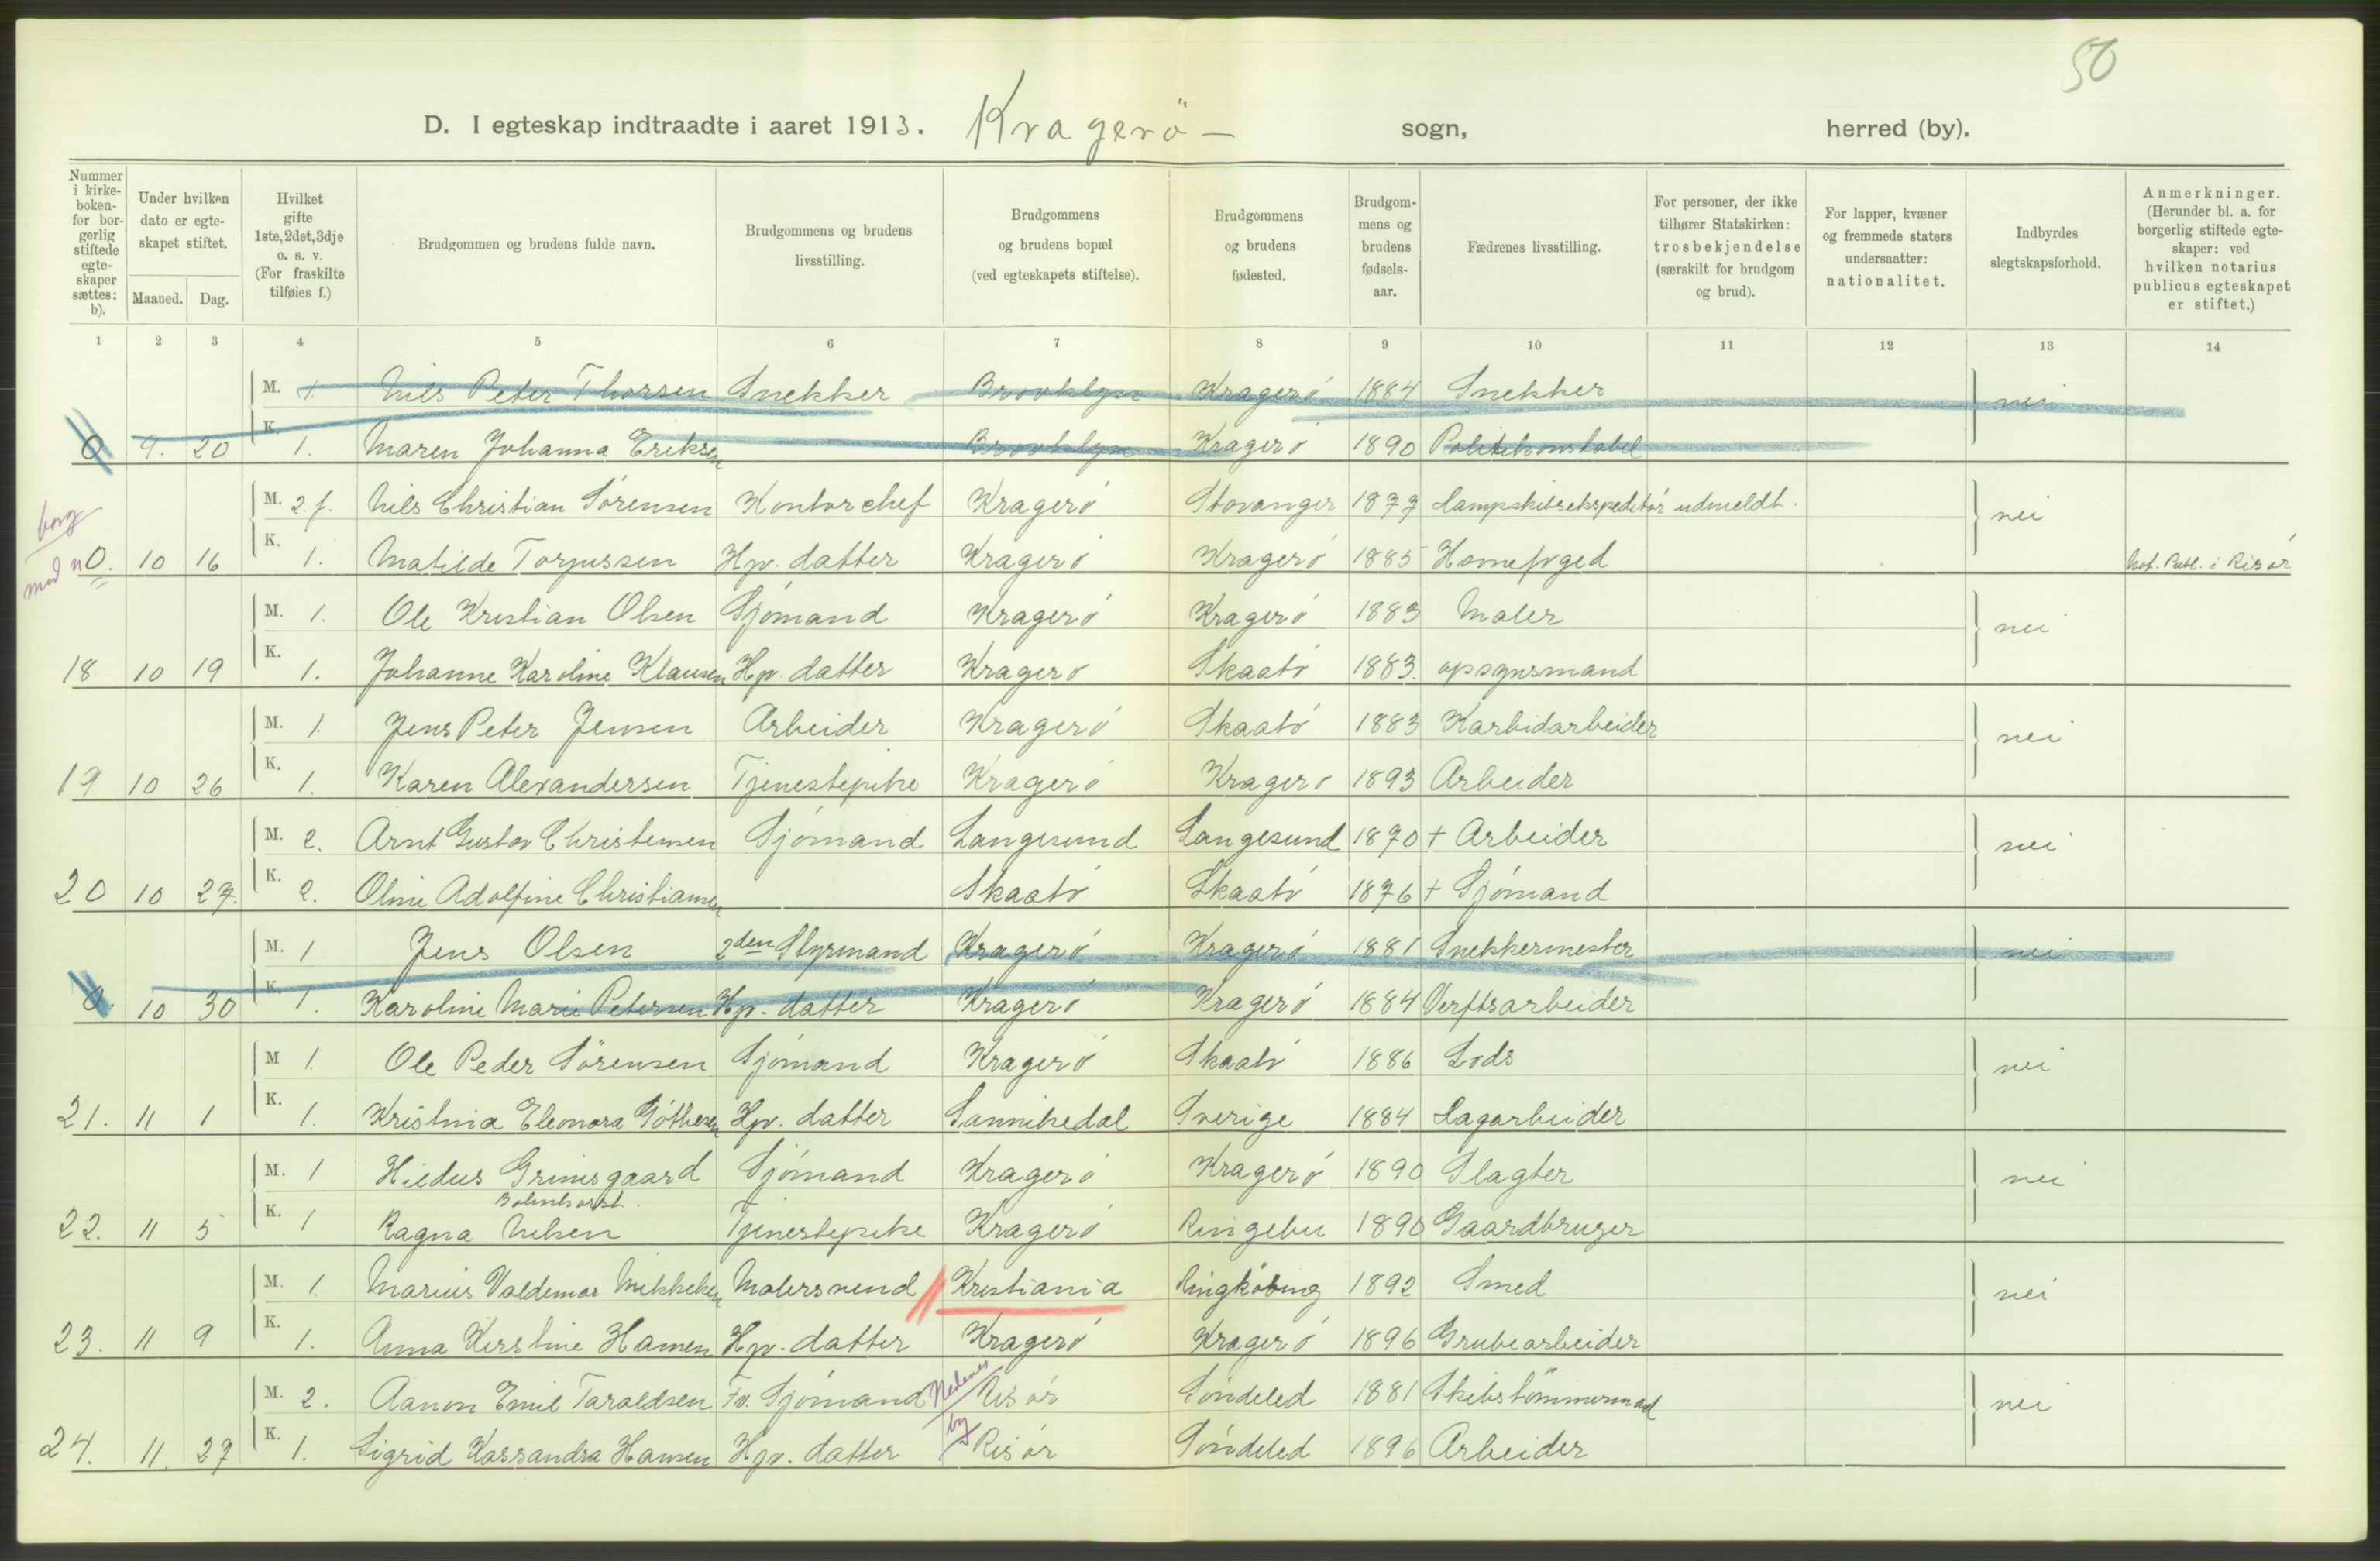 50
D. I egteskap indtraadte i aaret 1913. Kragerö — sogn, herred (by).
Nummer i kirke-boken- for bor-gerlig stiftede egte-skaper sættes: b).
Under hvilken dato er egte-skapet stiftet.
Maaned. Dag.
Hvilket gifte 1ste, 2det, 3dje o. s. v. (For fraskilte tilføies f.)
Brudgommen og brudens fulde navn.
Brudgommens og brudens livsstilling.
Brudgommens og brudens bopæl (ved egteskapets stiftelse).
Brudgommens og brudens fødested.
Brudgom-mens og brudens fødsels-aar.
Fædrenes livsstilling.
For personer, der ikke tilhører Statskirken: trosbekjendelse (særskilt for brudgom og brud).
For lapper, kvæner og fremmede staters undersaatter: nationalitet.
Indbyrdes slegtskapsforhold.
Anmerkninger. (Herunder bl. a. for borgerlig stiftede egte-skaper: ved hvilken notarius publicus egteskapet er stiftet.)
1 2 3 4 5 6 7 8 9 10 11 12 13 14
M. 1. Nils Peter Thorsen Snekker Brooklyn Kragerö 1884 Snekker nei
0 9. 20 K. 1. Maren Johanna Eriksen Brooklyn Kragerö 1890 Politikonstabel
borg
M. 2. f. Nils Christian Sörensen Kontorchef Kragerö Stavanger 1877 Dampskibsekspeditör udmeldt. nei
med n 0. 10 16 K. 1. Matilde Torjussen Hjv. datter Kragerö Kragerö 1885 Havnefoged Not. Publ. i Risör
M. 1. Ole Kristian Olsen Sjömand Kragerö Kragerö 1883 Maler nei
18 10 19 K. 1. Johanne Karoline Klausen Hjv. datter Kragerö Skaatö 1883. opsynsmand
M. 1. Jens Peter Jensen Arbeider Kragerö Skaatö 1883 Karbidarbeider nei
19 10 26 K. 1. Karen Alexandersen Tjenestepike Kragerö Kragerö 1893 Arbeider
M. 2. Arnt Gustav Christensen Sjömand Langesund Langesund 1870 + Arbeider nei
20 10 27. K. 2. Oline Adolfine Christiansen Skaatö Skaatö 1876 + Sjömand
M. 1 Jens Olsen 2den Styrmand Kragerö Kragerö 1881 Snekkermester nei
0. 10 30 K. 1. Karoline Marie Petersen Hjv. datter Kragerö Kragerö 1884 Verftsarbeider
M 1. Ole Peder Sörensen Sjömand Kragerö Skaatö 1886 Lods nei
21. 11 1 K. 1. Kristina Eleonora Göthesen Hjv. datter Sannikedal Sverige 1884 Sagarbeider
M. 1 Grimsgaard Sjömand Kragerö Kragerö 1890 Slagter nei
22. 11 5 K. 1 Ragna Nelsen Tjenestepike Kragerö Ringebu 1890 Gaardbruger
M. 1. Marius Valdemar Mikkelsen Malersvend Kristiania Ringköbing 1892 Smed nei
23. 11 9 K. 1. Anna Kerstine Hansen Hjv. datter Kragerö Kragerö 1896 Grubearbeider
M. 2. Aanon Emil Taraldsen Fv. Sjömand Nedenes Risör Söndeled 1881 Skibstömmermand nei
24. 11. 27 K. 1. Sigrid Kassandra Hansen Hjv. datter by Risör Söndeled 1896 Arbeider